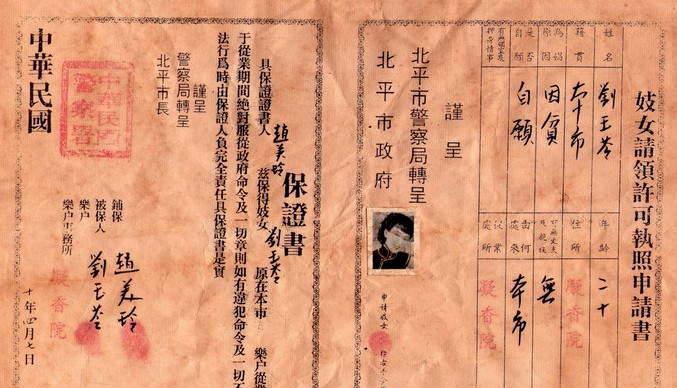 妓女請領許可執照申請書
姓名
劉玉苓
年齡
二十
籍貫
本市
住所
凝香院
為娼原因
因貧
有無丈夫及親族
無
是否自願
自願
由何處來
本市
有無押虐情事
以何業處所
凝香院
謹呈
北平市警察局轉呈
北平市政府
申請妓女
保證書
具保證書人
趙美玲
茲保得妓女
劉玉苓
原在本市
樂户從
于從業期間絶對服從政府命令及一切章則如有違犯命令及一切不
法行爲時由保證人負完全責任具保證書是實
謹呈
警察局轉呈
北平市長
鋪保
被保人
樂户
樂户事務所
趙美玲
劉玉苓
凝香院
中華民國
警察署
中華民國
十年四月七日